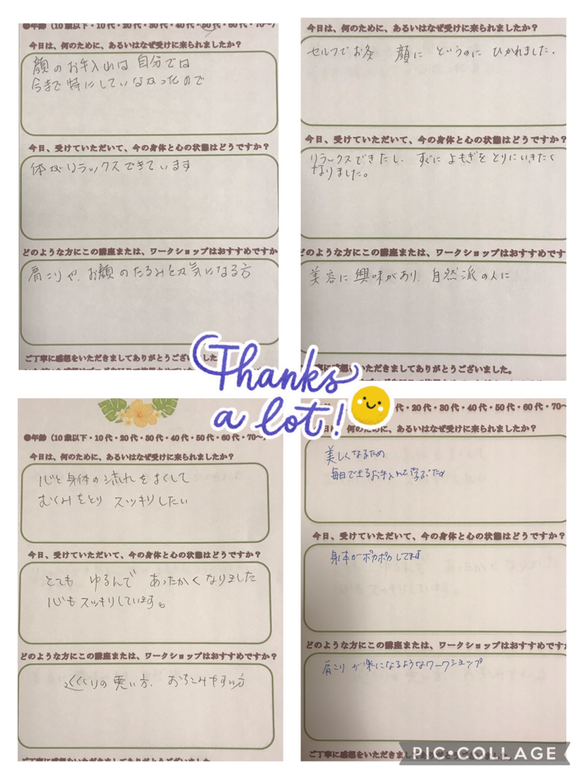 ●年齢（10歳以下・10代・20代・30代・40代・50代・60代・70〜）
今日は、何のために、あるいはなぜ受けに来られましたか？
顔のお手入れは自分では
今まで特にしていなかったので
今日、受けていただいて、今の身体と心の状態はどうですか？
体がリラックスできています
どのような方にこの講座または、ワークショップはおすすめですか
肩こりや、お顔のたるみとか気になる方
ご丁寧に感想をいただきましてありがとうございました
今日は、何のために、あるいはなぜ受けに来られましたか？
セルフでお灸 顔に というのに ひかれました。
今日、受けていただいて、今の身体と心の状態はどうですか？
リラックスできたし、すぐに よもぎを とりにいきたく
なりました。
どのような方にこの講座または、ワークショップはおすすめ
美容に興味があり 自然派の人に
に感想をいただきましてありがとうございました。
Thanks
a lot!
●年齢（10歳以下・10代・20代・30代・40代・50代・60代・70〜）
今日は、何のために、あるいはなぜ受けに来られましたか？
心と身体の流れをよくして
むくみをとり スッキリしたい
今日、受けていただいて、今の身体と心の状態はどうですか？
とても ゆるんで あったかくなりました
心もスッキリしています。
どのような方にこの講座または、ワークショップはおすすめですか
めぐりの悪い方、おちこみやすい方
ご丁寧に感想をいただきましてありがとうございました
代・20代・30代・40代・50代・60代・70〜
今日は、何のために、あるいはなぜ受けに来られましたか？
美しくなるため
毎日できるお手入れを学ぶため
今日、受けていただいて、今の身体と心の状態はどうですか？
身体がポカポカしてます
どのような方にこの講座または、ワークショップはおすすめですか
肩こりが楽になるようなワークショップ
ご丁寧に感想をいただきましてありがとうございました
PIC•COLLAGE